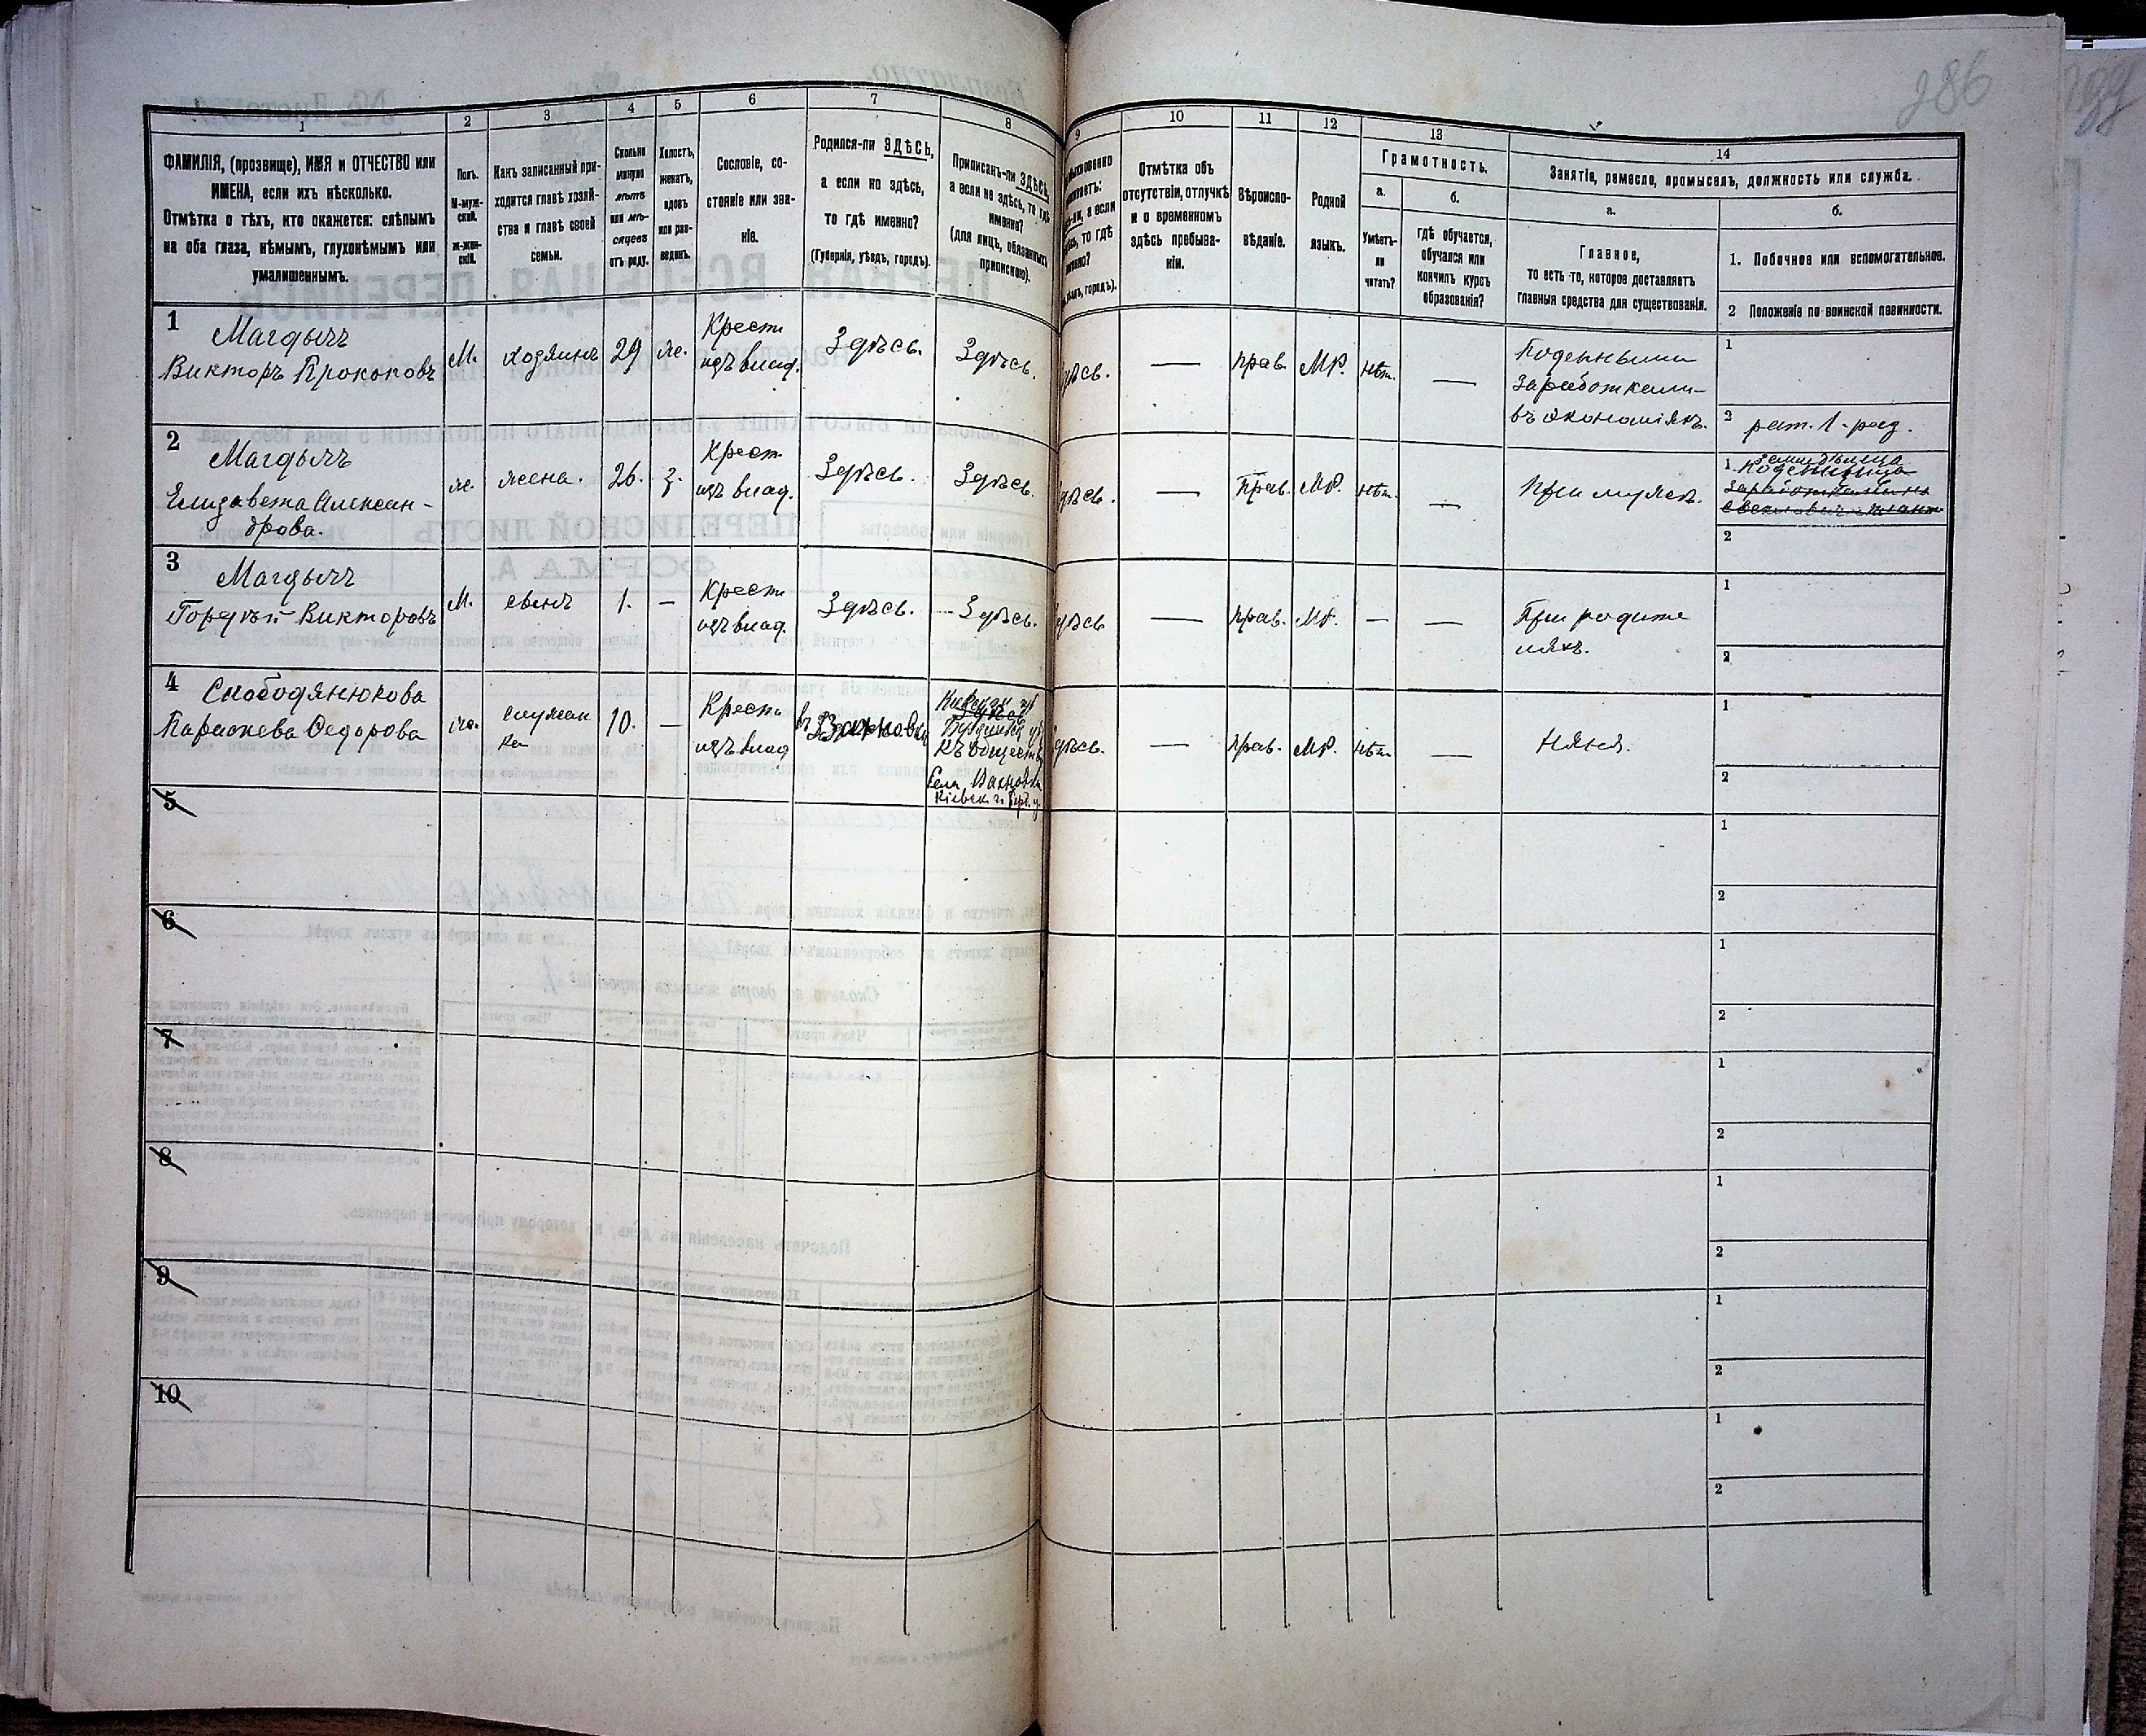 286
1
2
3
4
5
6
7
8
9
10
11
12
13
14
ФАМИЛІЯ, (прозвище), ИМЯ и ОТЧЕСТВО или
ИМЕНА, если ихъ нѣсколько.
Отмѣтка о тѣхъ, кто окажется: слѣпымъ
на оба глаза, нѣмымъ, глухонѣмымъ или
умалишеннымъ.
Полъ.
М-муж-
ской.
Ж-жен-
скій.
Какъ записанный при-
ходится главѣ хозяй-
ства и главѣ своей
семьи.
Сколько
минуло
лѣтъ
или мѣ-
сяцевъ
отъ роду.
Холостъ,
женатъ,
вдовъ
или раз-
веденъ.
Сословіе, со-
стояніе или зва-
ніе.
Родился-ли ЗДѢСЬ,
а если не здѣсь,
то гдѣ именно?
(Губернія, уѣздъ, городъ).
Приписанъ-ли ЗДѢСЬ,
а если не здѣсь, то гдѣ
именно?
(для лицъ, обязанныхъ
припискою).
Отмѣтка объ
отсутствіи, отлучкѣ
и о временномъ
здѣсь пребыва-
ніи.
Вѣроиспо-
вѣданіе.
Родной
языкъ.
Грамотность.
а.
б.
Умѣетъ-
ли
читать?
гдѣ обучается,
обучался или
кончилъ курсъ
образованія?
Занятіе, ремесло, промыселъ, должность или служба.
а.
б.
Главное,
то есть то, которое доставляетъ
главныя средства для существованія.
1. Побочное или вспомогательное.
2 Положеніе по воинской повинности.
1
Магдычъ
Викторъ Прокоповъ
М.
хозяинъ
29
же.
Крест.
изъ влад.
Здѣсь.
Здѣсь.
—
прав.
МР.
нѣт.
—
Поденными
заработками
въ экономіяхъ.
1
2 рат. 1-раз.
2
Магдычъ
Елизавета Алексан-
дрова.
ж.
жена.
26.
з.
Крест.
изъ влад.
Здѣсь.
Здѣсь.
—
Прав.
МР.
нѣт.
—
При мужѣ.
1
2
3
Магдычъ
Гордѣй Викторовъ
М.
сынъ
1.
—
Крест.
изъ влад.
Здѣсь.
Здѣсь.
—
прав.
МР.
—
—
При родите
ляхъ.
1
2
4
Слободянюкова
Параскева Федорова
ж.
служан
ка
10.
—
Крест.
изъ влад
—
прав.
МР.
нѣт.
—
Няня.
1
2
5
1
2
6
1
2
7
1
2
8
1
2
9
1
2
10
1
2